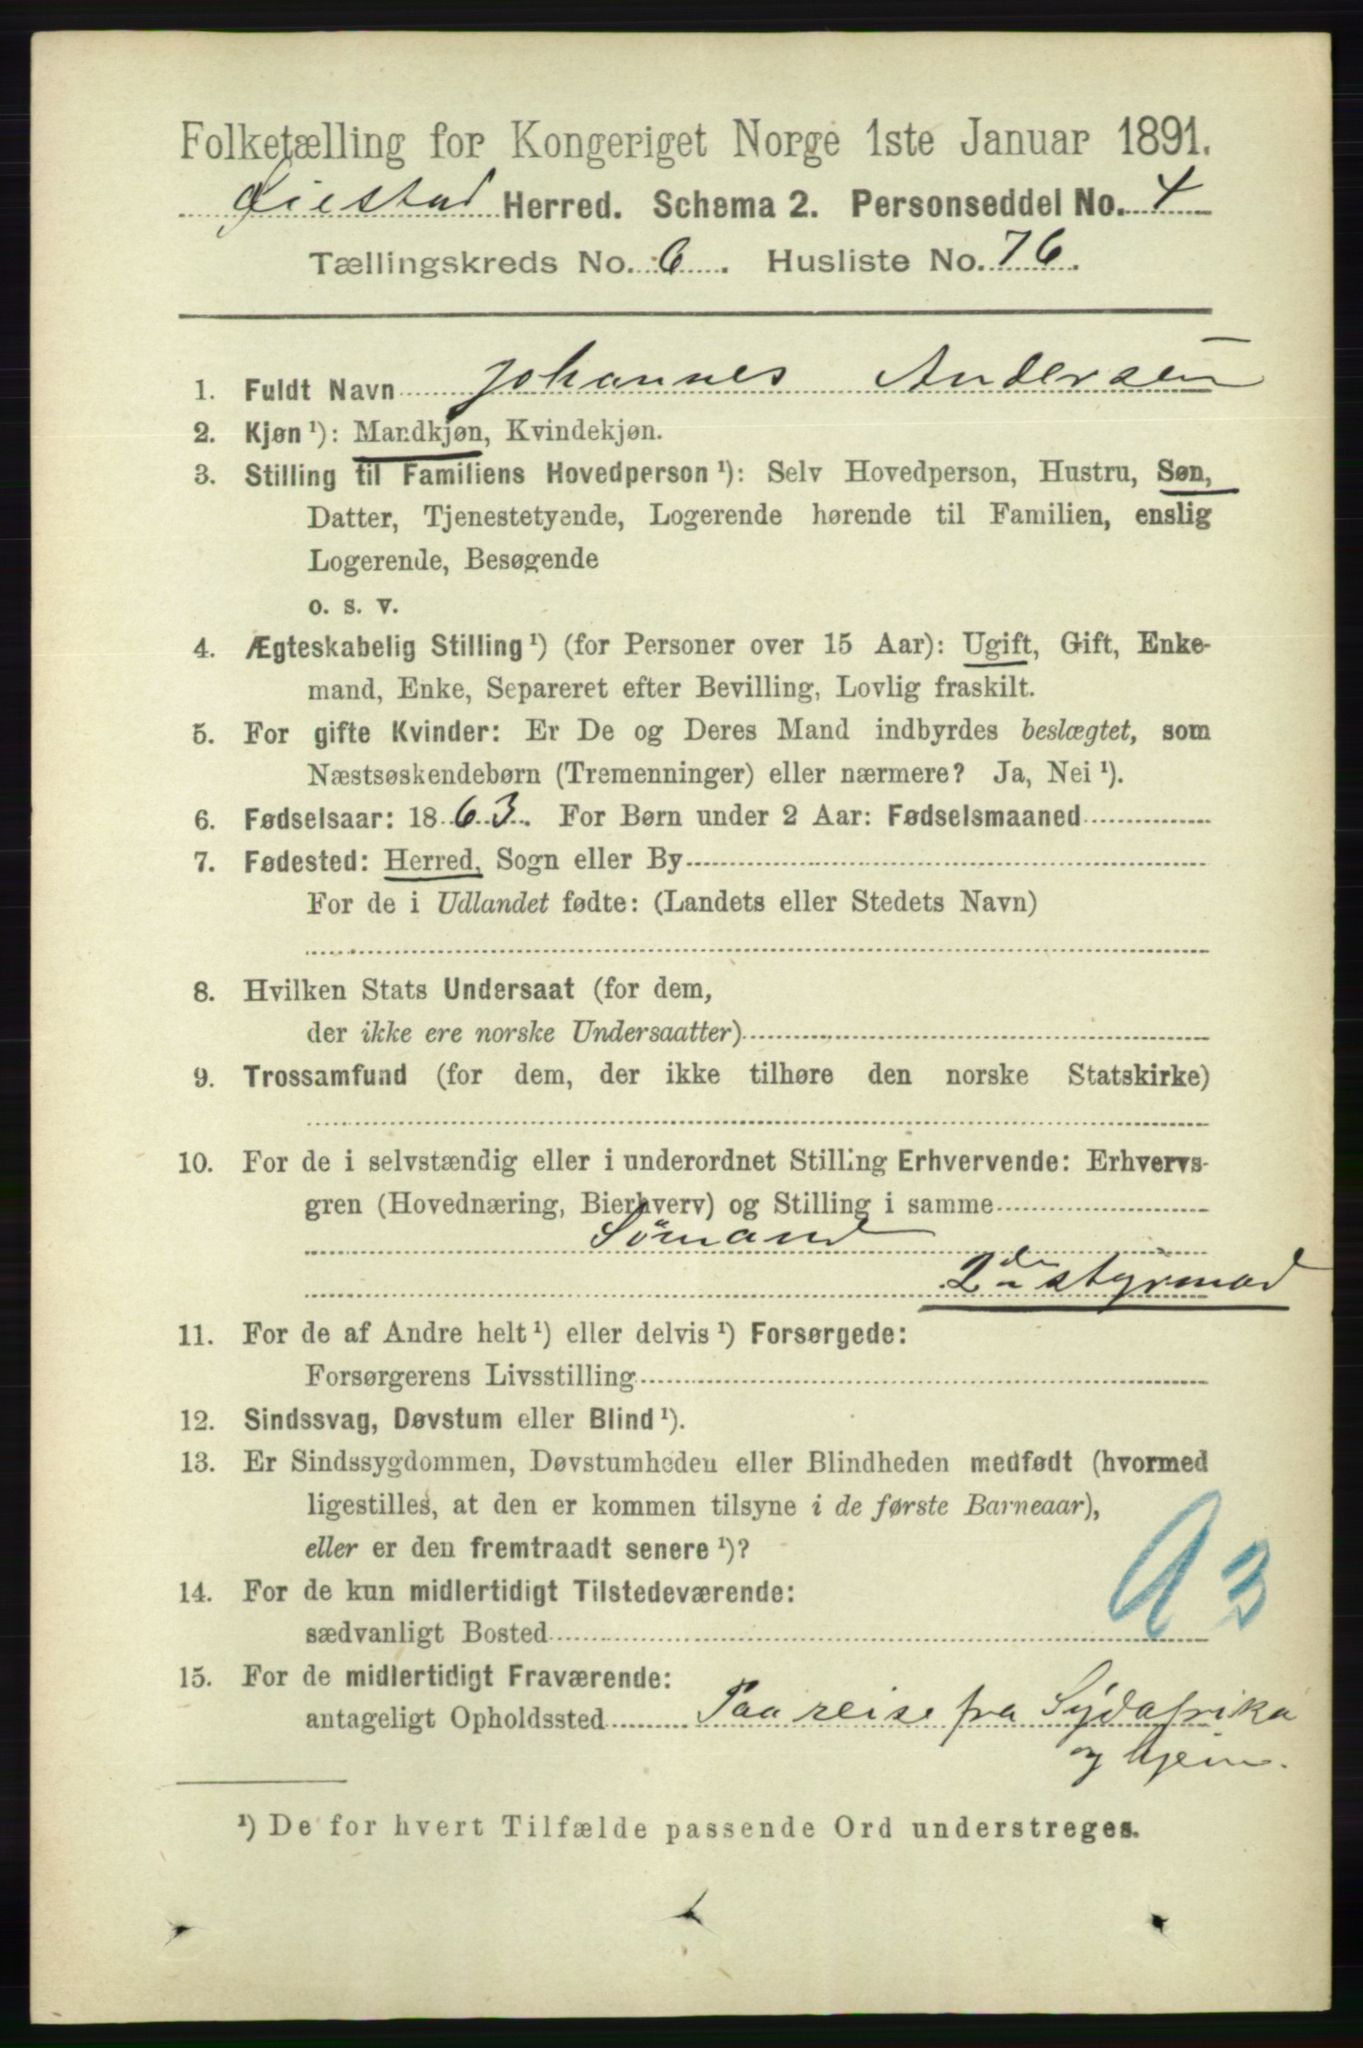 Folketælling for Kongeriget Norge 1ste Januar 1891.
Øiestad Herred. Schema 2. Personseddel No. 4
Tællingskreds No. 6. Husliste No. 76.
1. Fuldt Navn Johannes Andersen
2. Kjøn ¹): Mandkjøn, Kvindekjøn.
3. Stilling til Familiens Hovedperson ¹): Selv Hovedperson, Hustru, Søn,
Datter, Tjenestetyende, Logerende hørende til Familien, enslig
Logerende, Besøgende
o. s. v.
4. Ægteskabelig Stilling ¹) (for Personer over 15 Aar): Ugift, Gift, Enke-
mand, Enke, Separeret efter Bevilling, Lovlig fraskilt.
5. For gifte Kvinder: Er De og Deres Mand indbyrdes beslægtet, som
Næstsøskendebørn (Tremenninger) eller nærmere? Ja, Nei ¹).
6. Fødselsaar: 1863. For Børn under 2 Aar: Fødselsmaaned
7. Fødested: Herred, Sogn eller By
For de i Udlandet fødte: (Landets eller Stedets Navn)
8. Hvilken Stats Undersaat (for dem,
der ikke ere norske Undersaatter)
9. Trossamfund (for dem, der ikke tilhøre den norske Statskirke)
10. For de i selvstændig eller i underordnet Stilling Erhvervende: Erhvervs-
gren (Hovednæring, Bierhverv) og Stilling i samme
Sömand
2den styrmad
11. For de af Andre helt ¹) eller delvis ¹) Forsørgede:
Forsørgerens Livsstilling
12. Sindssvag, Døvstum eller Blind ¹).
13. Er Sindssygdommen, Døvstumheden eller Blindheden medfødt (hvormed
ligestilles, at den er kommen tilsyne i de første Barneaar),
eller er den fremtraadt senere ¹)?
93
14. For de kun midlertidigt Tilstedeværende:
sædvanligt Bosted
15. For de midlertidigt Fraværende:
antageligt Opholdssted Paa reise fra Sydafrika
og hjem.
¹) De for hvert Tilfælde passende Ord understreges.